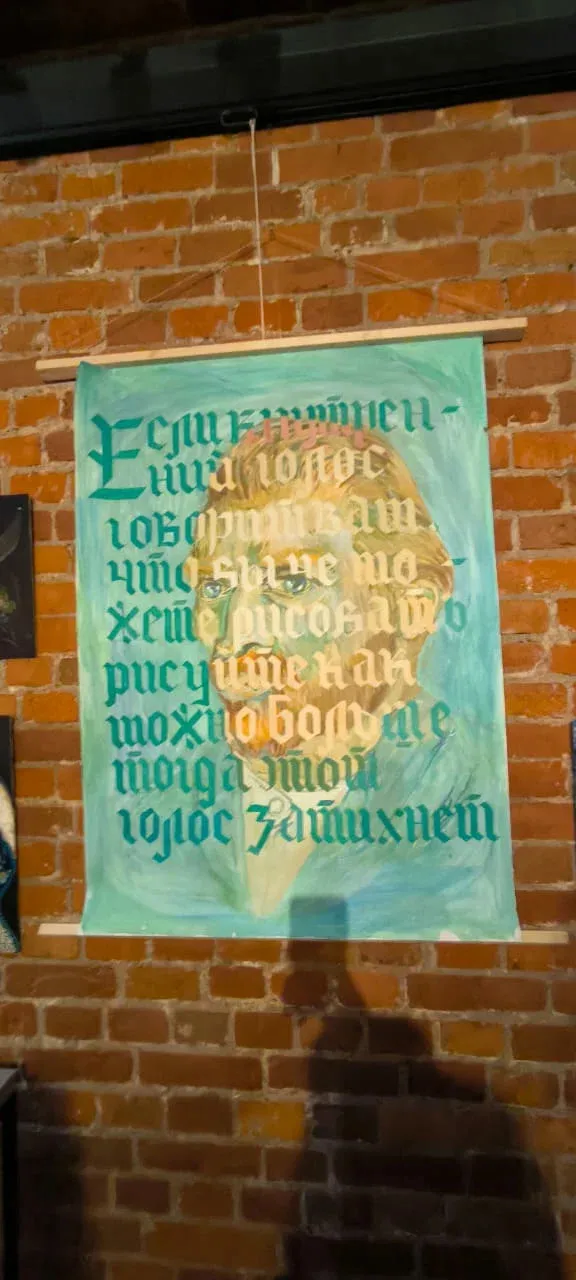 Если внутрен-
ний голос
говорит вам,
что вы не мо-
жете рисовать
рисуйте как
можно больше
тогда этот
голос затихнет